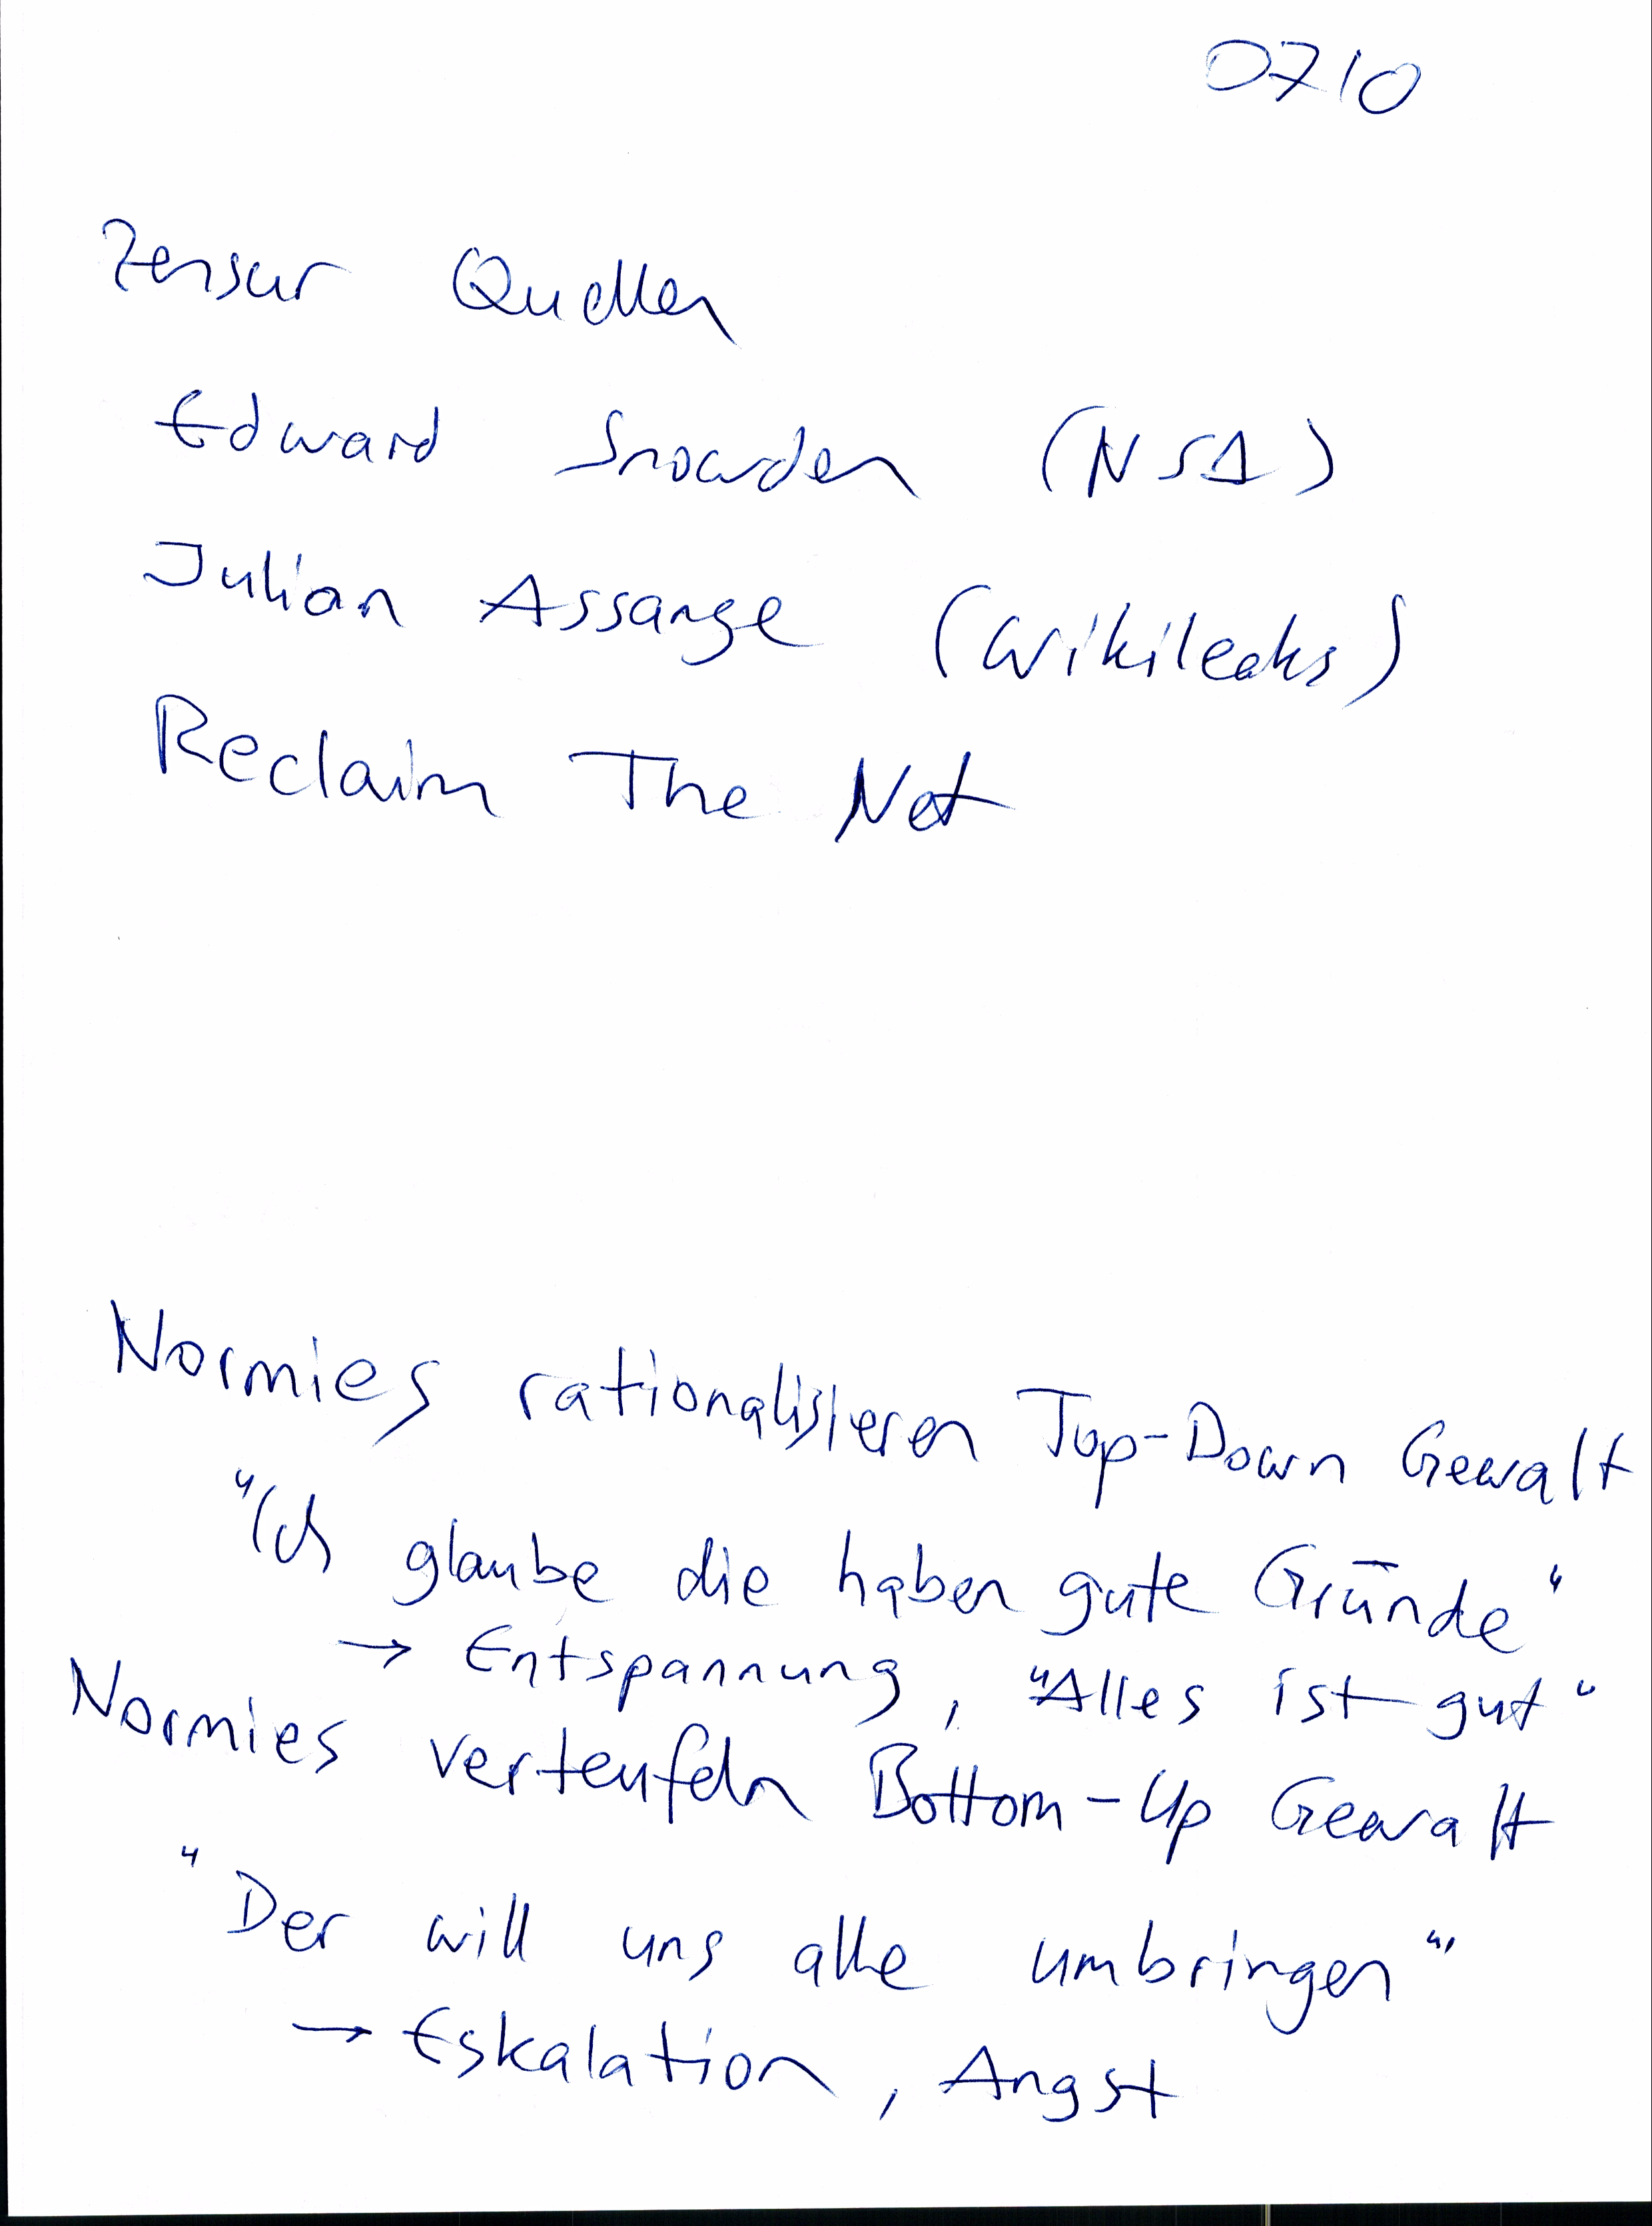 0710
Zensur Quellen
Edward Snowden (NSA)
Julian Assange (Wikileaks)
Reclaim The Net
Normies rationalisieren Top-Down Gewalt
"Ich glaube die haben gute Gründe"
→ Entspannung, "Alles ist gut"
Normies verteufeln Bottom-Up Gewalt
"Der will uns alle umbringen"
→ Eskalation, Angst